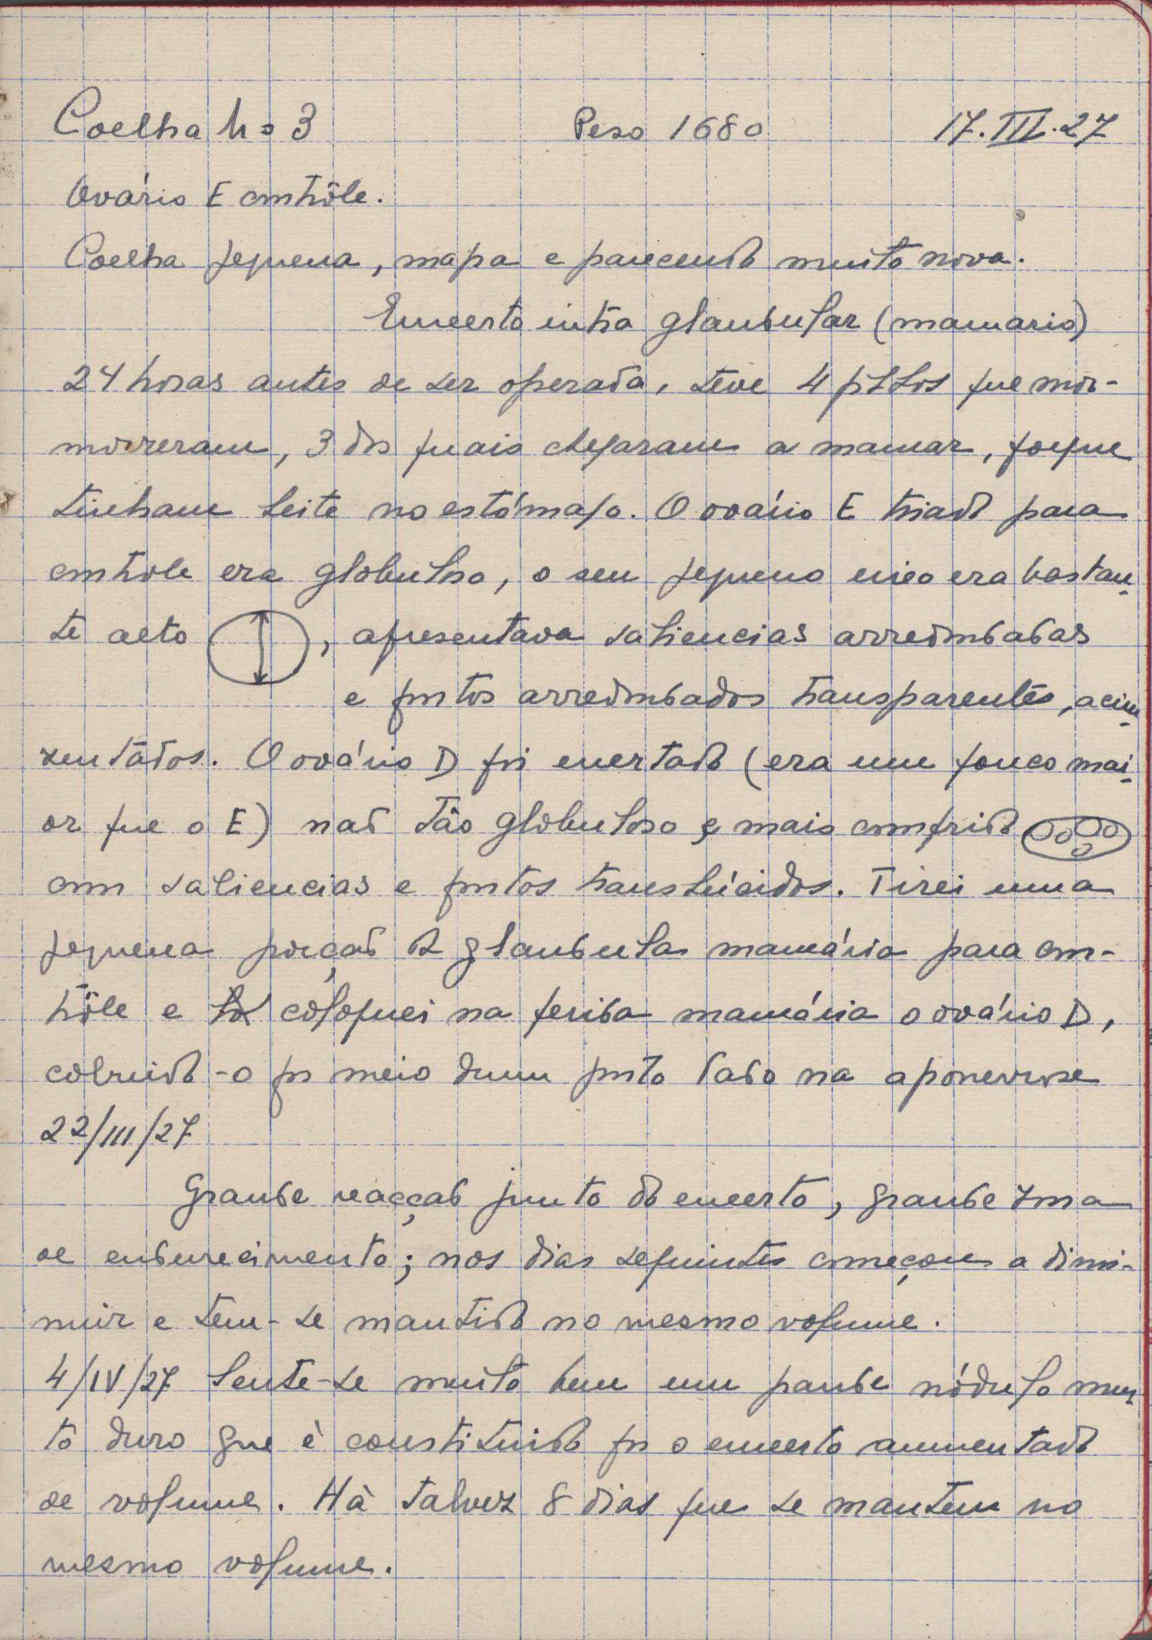 Coelha nº 3 Peso 1680 17.III.27
Ovário E contrôle.
Coelha pequena, magra e parecendo muito nova.
Enxerto intra glandular (mamario)
24 horas antes de ser operada, teve 4 filhos que mor-
morreram, 3 dos quais chegaram a mamar, porque
tinham leite no estômago. O ovário E tirado para
controle era globuloso, o seu pequeno eixo era bastan-
te alto , apresentava saliencias arredondadas
e pontos arredondados transparentes, acin-
zentados. O ovário D foi enxertado (era um pouco mai-
or que o E) não tão globuloso e mais comprido
com saliencias e pontos translúcidos. Tirei uma
pequena porção de glandula mamária para con-
trôle e coloquei na ferida mamária o ovário D,
cobrindo-o por meio dum ponto dado na aponevrose
22/III/27
Grande reacção junto do enxerto, grande zona
de endurecimento; nos dias seguintes começou a dimi-
nuir e tem-se mantido no mesmo volume.
4/IV/27 Sente-se muito bem um grande nódulo mui-
to duro que è constituido por o enxerto aumentado
de volume. Hà talvez 8 dias que se mantem no
mesmo volume.